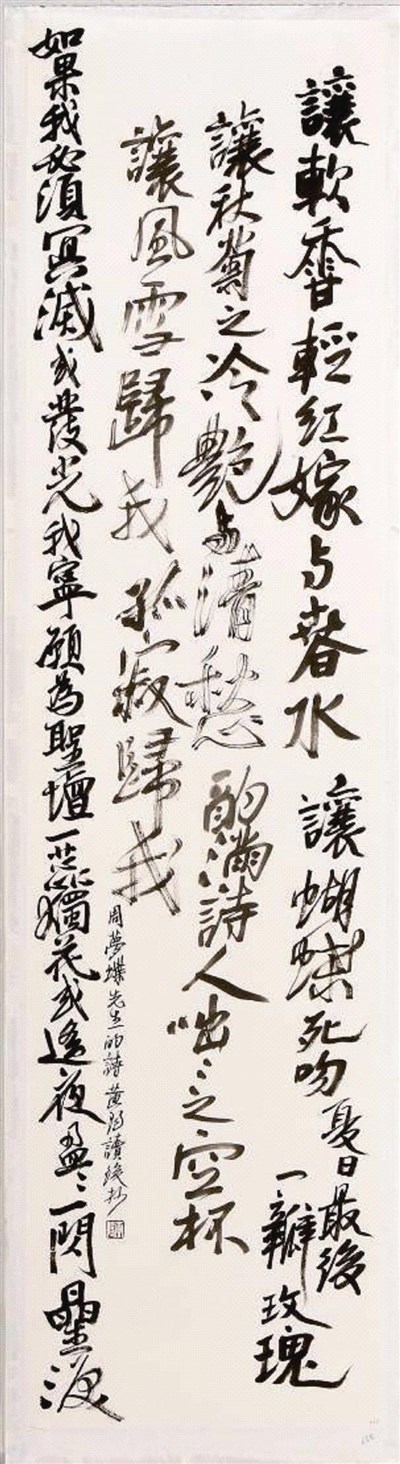 讓軟香輕紅嫁与春水 讓蝴蝶死吻夏日最後
一瓣玫瑰
讓秋菊之冷艷与清愁 酌滿詩人咄〻之空杯
讓風雪歸我 孤寂歸我
如果我必須冥滅或發光我寧願為聖壇一蕊燭花或遙夜盈〻一閃星淚
周夢蝶先生的詩 黃 讀後抄